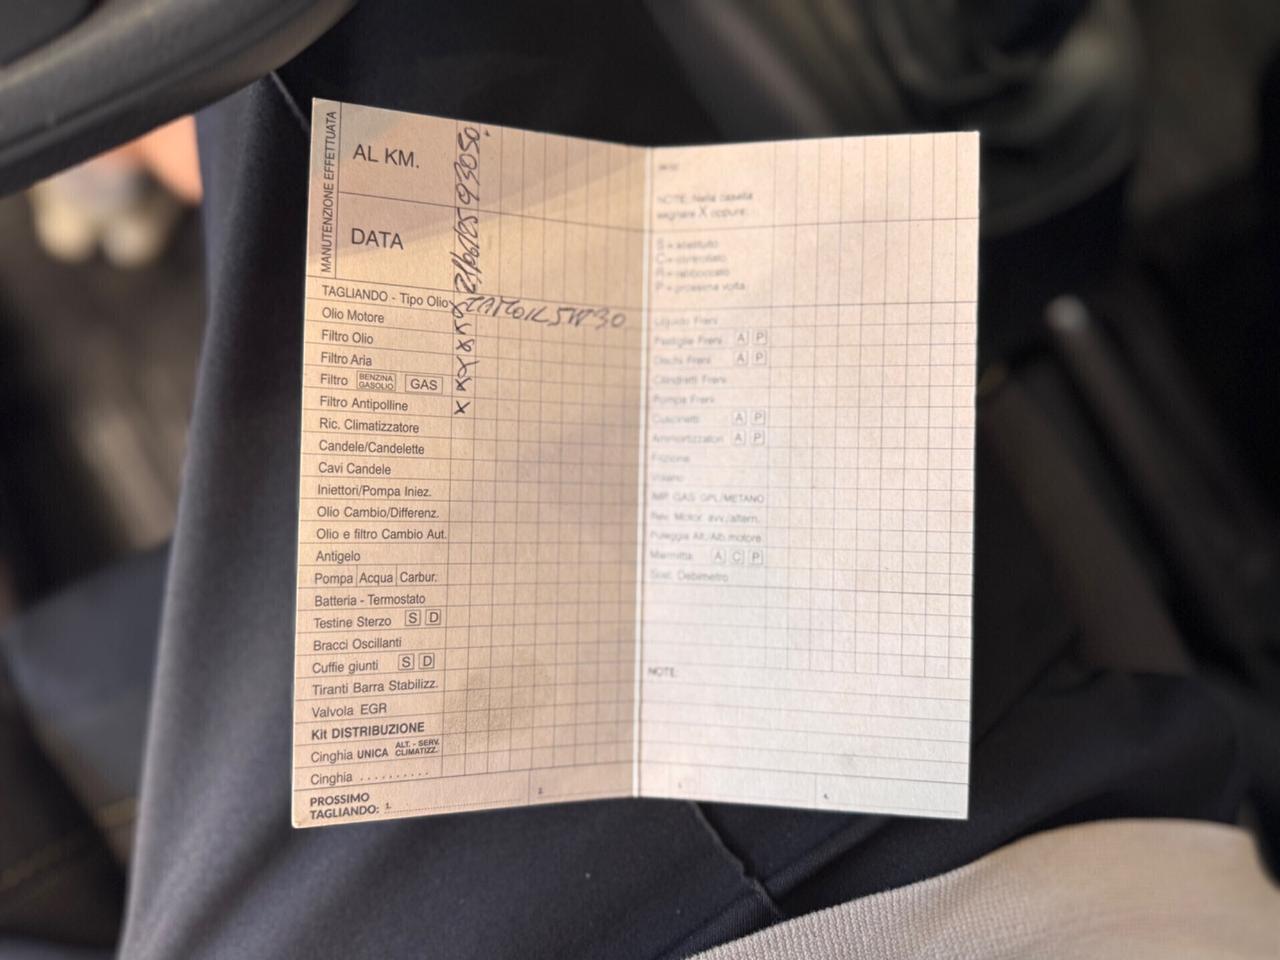 MANUTENZIONE EFFETTUATA
AL KM. 93050
DATA
TAGLIANDO - Tipo Olio 5W30
Olio Motore X
Filtro Olio X
Filtro Aria X
Filtro BENZINA GASOLIO GAS X
Filtro Antipolline X
Ric. Climatizzatore
Candele/Candelette
Cavi Candele
Iniettori/Pompa Iniez.
Olio Cambio/Differenz.
Olio e filtro Cambio Aut.
Antigelo
Pompa Acqua Carbur.
Batteria - Termostato
Testine Sterzo S D
Bracci Oscillanti
Cuffie giunti S D
Tiranti Barra Stabilizz.
Valvola EGR
Kit DISTRIBUZIONE
Cinghia UNICA ALT. - SERV. CLIMATIZZ.
Cinghia ..........
PROSSIMO
TAGLIANDO: 1.
2.
NOTE: Nella casella
segnare X oppure:
S = sostituito
C = controllato
R = rabboccato
P = prossima volta
Liquido Freni
Pastiglie Freni A P
Dischi Freni A P
Cilindretti Freni
Pompa Freni
Cuscinetti A P
Ammortizzatori A P
Frizione
Volano
IMP. GAS GPL/METANO
Rev. Motor. avv./altern.
Puleggia Alt./Alb.motore
Marmitta A C P
Sost. Debimetro
NOTE:
3.
4.